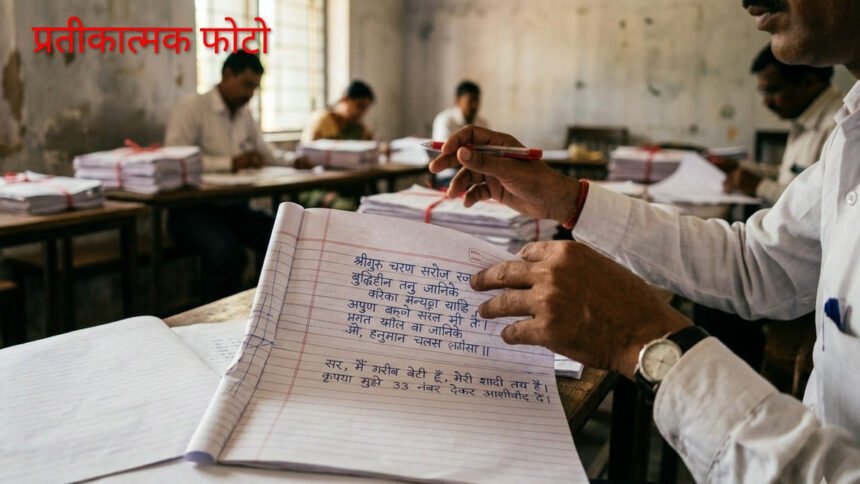 प्रतीकात्मक फोटो
श्रीगुरु चरण सरोज रज
बुद्धिहीन तनु जानिके
करेका
अपुण बरूणे सरल मी तें।
वा जानिके
ओ, हनुमान चलस
सर, मैं गरीब बेटी हूँ, मेरी शादी तय है।
कृपया मुझे 33 नंबर देकर आशीर्वाद दें।